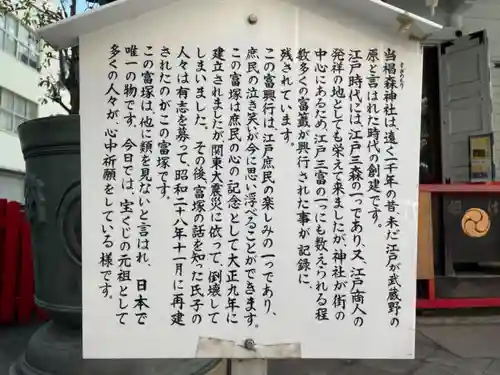 当椙森神社は、遠く一千年の昔、未だ江戸が武蔵野の
すぎのもり
原と言はれた時代の創建です。
江戸時代には、江戸三森の一つであり、又、江戸商人の
発祥の地としても栄えて来ましたが、神社が街の
中心にあるため、江戸三富の一つにも数えられる程
数多くの富籤が興行された事が記録に
残されています。
この富興行は、江戸庶民の楽しみの一つであり、
庶民の泣き笑いが今に思い浮べることができます。
この富塚は庶民の心の記念として大正九年に
建立されましたが関東大震災に依って、倒壊して
しまいました。その後、富塚の話を知った氏子の
人々は有志を募って、昭和二十八年十一月に再建
されたのがこの富塚です。
この富塚は、他に類を見ないと言はれ、日本で
唯一の物です。今日では、宝くじの元祖として
多くの人々が、心中祈願をしている様です。